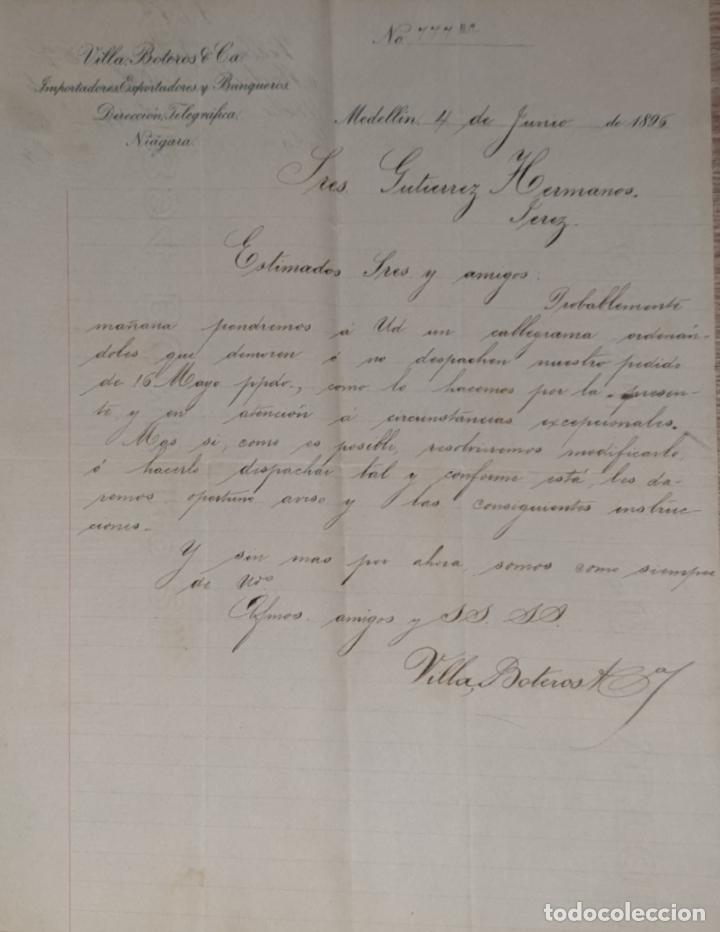 Villa, Boteros & Ca
Importadores, Exportadores y Banqueros.
Dirección Telegráfica,
Niágara.
No 777
Medellin, 4 de Junio de 1896
Sres. Gutierrez Hermanos.
Jerez.
Estimados Sres. y amigos:
Probablemente
mañana pondremos á Ud un cablegrama ordenán-
doles que demoren ó no despachen nuestro pedido
de 16 Mayo ppdo., como lo hacemos por la presen-
te, y en atención á circunstancias excepcionales.
Mas si, como es posible, resolvieremos modificarlo,
ó hacerlo despachar tal y conforme está, les da-
remos oportuno aviso y las consiguientes instruc-
ciones.-
Y sin mas por ahora, somos como siempre
de Uds
Afmos. amigos y SS. SS.
Villa, Boteros & Ca
todocoleccion.net